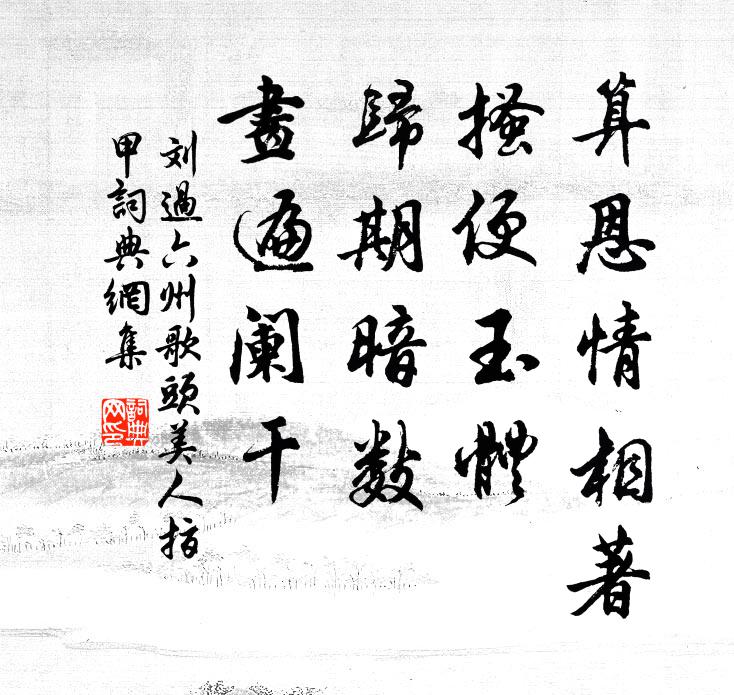 算恩情相著
搔便玉體
歸期暗數
畫遍阑干
刘過六州歌頭美人指
甲詞典網集
詞典
网印